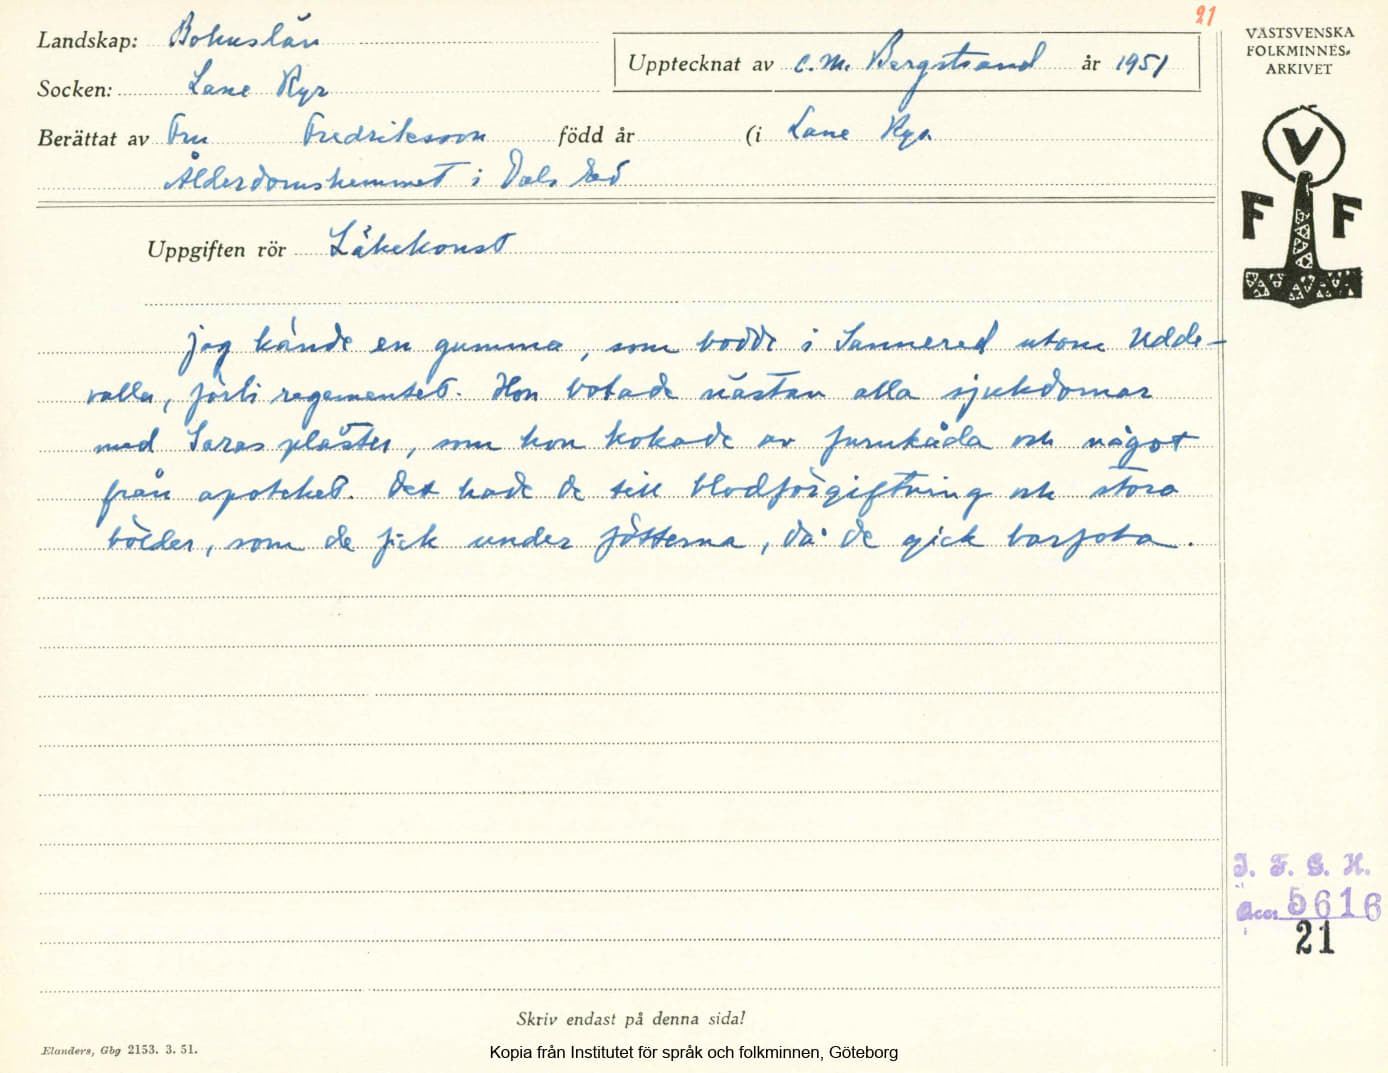 21
Landskap: Bohuslän
Upptecknat av C.M. Bergstrand år 1951
Socken: Lane Ryr
Berättat av Fru Fredriksson född år (i Lane Ryr
Ålderdomshemmet i Dals Ed
Uppgiften rör Läkekonst
jag kände en gumma, som bodde i Sannered utom Udde-
valla, förbi regementet. Hon botade nästan alla sjukdomar
med Saras plåster, som hon kokade av furukåda och något
från apoteket. Det hade de till blodförgiftning och stora
bölder, som de fick under fötterna, då de gick barfota.
Skriv endast på denna sida!
Elanders, Gbg 2153. 3. 51.
Kopia från Institutet för språk och folkminnen, Göteborg
VÄSTSVENSKA
FOLKMINNES-
ARKIVET
V
F F
I. F. G. H.
Acc. 5616
21